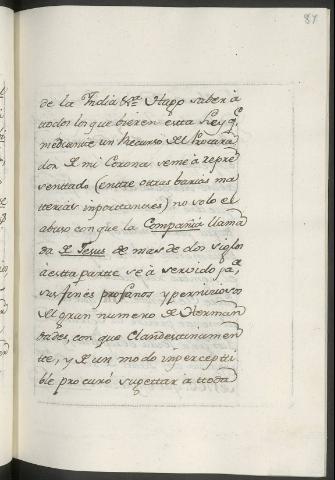 87
de la India &ra. Hago saber à
todos los que bieren esta Ley qe.
mediante un Recurso del Procura
dor de mi Corona seme à repre
sentado (entre otras barias ma
terias inportantes) no solo el
abuso con que la Compañia llama
da de Jesus de mas de dos siglos
à esta parte se à servido pa.
sus fines profanos y perniciosos
del gran numero de Herman
dades, con que Clandestinamen
te, y de un modo inpercepti
ble procuró sugettar à toda